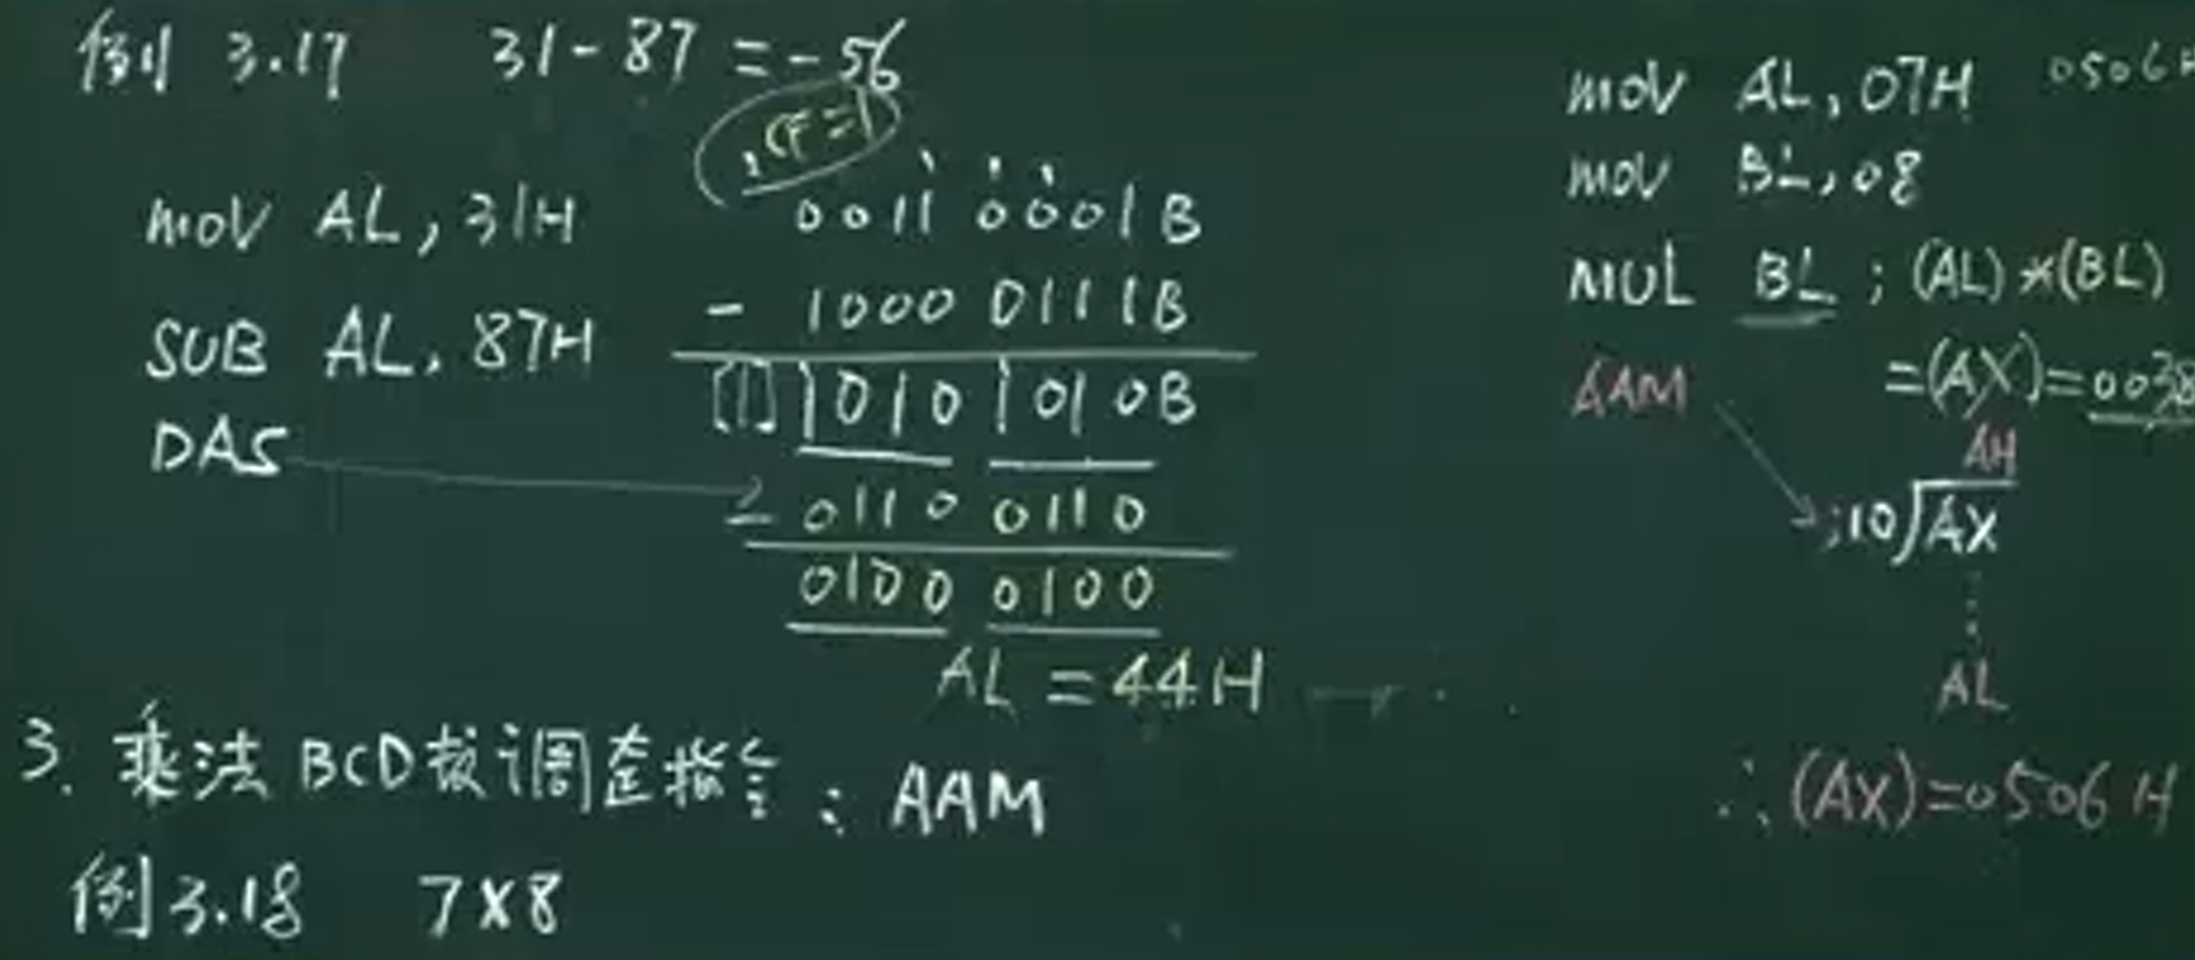 例 3.17 31-87 =-56
,CF=1
MOV AL, 31H
SUB AL, 87H
DAS
0011 0001B
- 1000 0111B
[1]1010 1010B
- 0110 0110
0100 0100
AL = 44H
3. 乘法BCD码调整指令: AAM
例3.18 7×8
MOV AL, 07H 0506H
MOV BL, 08
MUL BL ; (AL)*(BL)
=(AX)=0038
AAM
AH
;10√AX
AL
∴(AX)=0506H